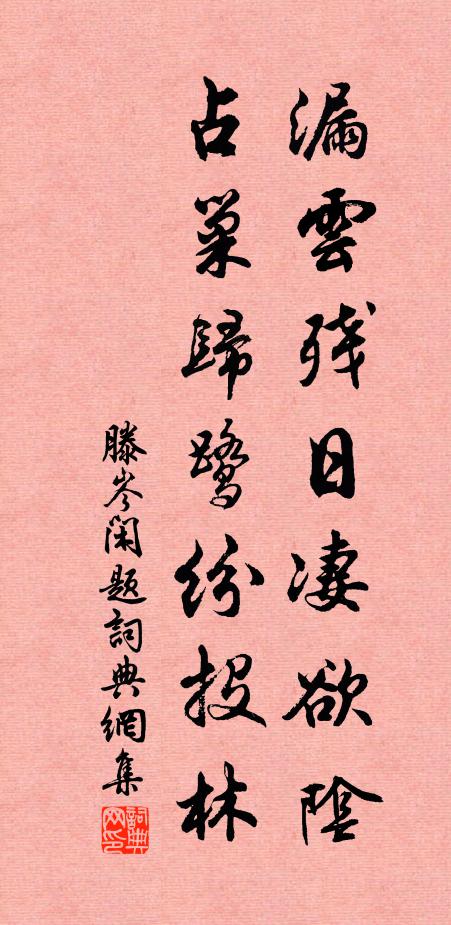 漏雲残日凄欲陰
占巢歸鷺紛投林
滕岑閑題詞典網集
詞典网印